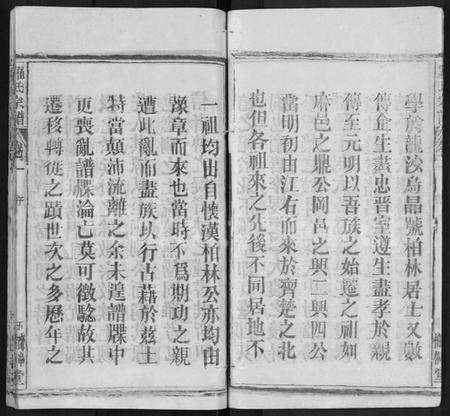 學於龍沙烏晶號柏林居士又數
傳企生蓋忠晉室遵生盡孝於親
傳至元明以吾族之始遷之祖如
麻邑之鼎公岡邑之興一興四公
當明初由江右而來於齊楚之北
也但各祖來之先後不同居地不
一祖均由自懷漢柏林公亦均由
豫章而來也當時不爲期功之親
遭此亂而盡族以行古藉於兹土
特當顛沛流離之余未遑譜牒中
更喪亂譜牒淪亡莫可徵騐故其
遷移轉徙之蹟世次之多歷年之
羅氏宗譜
卷一
序